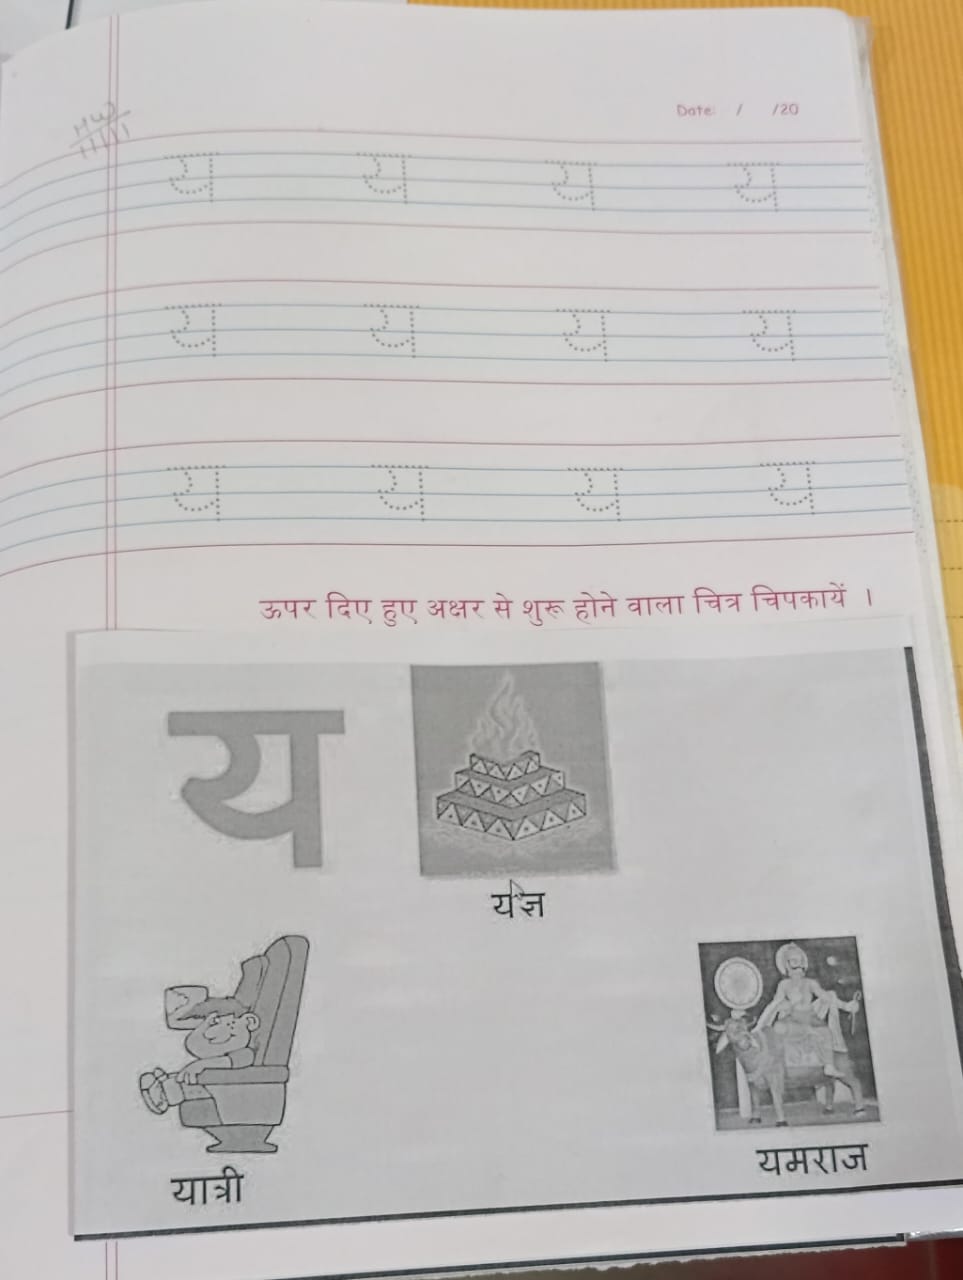 Date: / /20
HW
11/11
य य य य
य य य य
य य य य
ऊपर दिए हुए अक्षर से शुरू होने वाला चित्र चिपकायें ।
य
यज्ञ
यात्री
यमराज